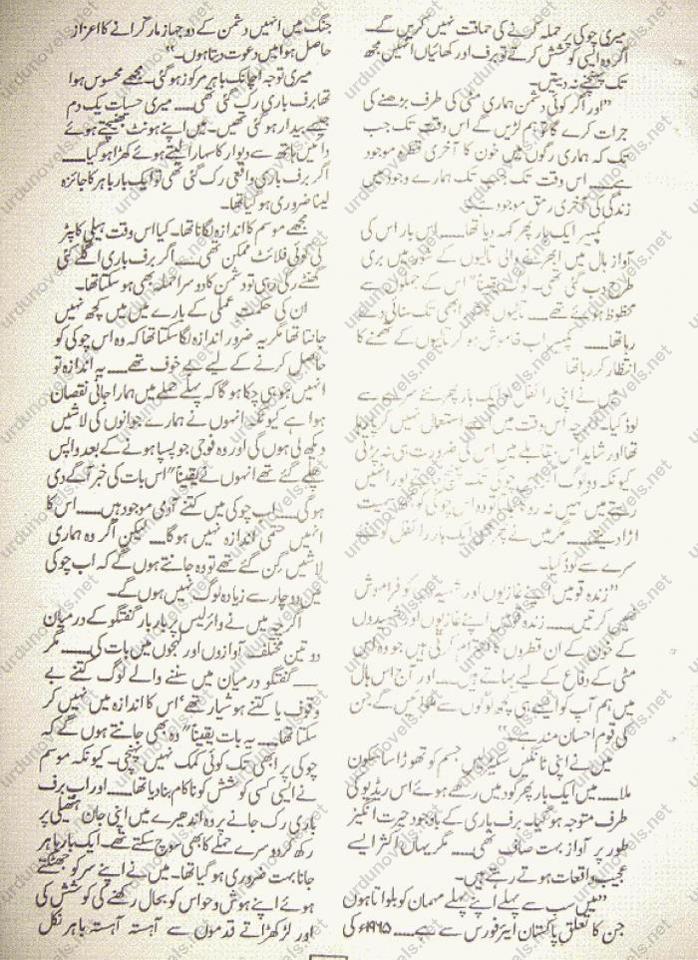 میری چوکی پر حملہ کرنے کی حماقت نہیں کریں گے۔
اگر وہ ایسی کوشش کرتے تو برف اور کھائیاں انہیں مجھ
تک پہنچنے نہ دیتیں۔
"اور اگر کوئی دشمن ہماری مٹی کی طرف بڑھنے کی
جرات کرے گا تو ہم لڑیں گے اس وقت تک جب
تک کہ ہماری رگوں میں خون کا آخری قطرہ موجود
ہے۔۔۔۔ اس وقت تک جب تک ہمارے وجود میں
زندگی کی آخری رمق موجود ہے۔"
کمپیئر ایک بار پھر کہہ دیا تھا۔۔۔۔ اس بار اس کی
آواز ہال میں ابھرنے والی تالیوں کے شور میں بری
طرح دب گئی تھی۔ لوگ یقیناً" اس کے جملوں سے
محظوظ ہوئے تھے۔۔۔۔ تالیوں کا شور ابھی تک سنائی دے
رہا تھا۔۔۔۔ کمپیئر اب خاموش ہو کر تالیوں کے تھمنے کا
انتظار کر رہا تھا
میں نے اپنی رائفل کو ایک بار پھر نئے سرے سے
لوڈ کیا۔ اگرچہ اس وقت میں اسے استعمال نہیں کر پا رہا
تھا اور شاید اس مقابلے میں اس کی ضرورت ہی نہ پڑتی
کیونکہ وہ لوگ اگر اس چوکی تک پہنچ جاتے اور انہیں
رستے میں میں نہ روک پاتا تو وہ اس چوکی کو مجھ سمیت
اڑا دیتے۔۔۔۔ مگر میں نے پھر بھی ایک بار رائفل کو نئے
سرے سے لوڈ کیا۔
"زندہ قومیں اپنے غازیوں اور شہیدوں کو فراموش
نہیں کرتیں۔۔۔۔ زندہ قومیں اپنے غازیوں اور شہیدوں
کے خون کے ان قطروں کا احترام کرتی ہیں جو وہ اس
مٹی کے دفاع کے لیے بہاتے ہیں۔۔۔۔ اور آج اس ہال
میں ہم آپ کو ایسے ہی کچھ لوگوں سے ملوائیں گے جن
کی قوم احسان مند ہے۔"
میں نے اپنی ٹانگیں سکیڑیں جسم کو تھوڑا سا سکون
ملا۔۔۔۔ میں ایک بار پھر گود میں رکھے ہوئے اس ریڈیو کی
طرف متوجہ ہو گیا۔ برف باری کے باوجود حیرت انگیز
طور پر آواز بہت صاف تھی۔۔۔۔ مگر یہاں اکثر ایسے
عجیب واقعات ہوتے رہتے ہیں۔
"میں سب سے پہلے اپنے پہلے مہمان کو بلواتا ہوں
جن کا تعلق پاکستان ایئر فورس سے ہے۔۔۔۔ ۱۹۶۵ء کی
جنگ میں انہیں دشمن کے دو جہاز مار گرانے کا اعزاز
حاصل ہوا میں دعوت دیتا ہوں۔"
میری توجہ اچانک باہر مرکوز ہو گئی۔ مجھے محسوس ہوا
تھا برف باری رک گئی تھی۔۔۔۔ میری حسیات یک دم
جیسے بیدار ہو گئی تھیں۔ میں اپنے ہونٹ بھینچتے ہوئے
دائیں ہاتھ سے دیوار کا سہارا لیتے ہوئے کھڑا ہو گیا۔۔۔۔
اگر برف باری واقعی رک گئی تھی تو ایک بار باہر کا جائزہ
لینا ضروری ہو گیا تھا۔
مجھے موسم کا اندازہ لگانا تھا۔ کیا اس وقت ہیلی کاپٹر
کی کوئی فلائٹ ممکن تھی۔۔۔۔ اگر برف باری اگلے کئی
گھنٹے رکی رہتی تو دشمن کا دوسرا حملہ بھی ہو سکتا تھا۔
ان کی حکمت عملی کے بارے میں میں کچھ نہیں
جانتا تھا مگر یہ ضرور اندازہ لگا سکتا تھا کہ وہ اس چوکی کو
حاصل کرنے کے لیے بے خوف تھے۔۔۔۔ یہ اندازہ تو
انہیں ہو ہی چکا ہو گا کہ پہلے حملے میں ہمارا جانی نقصان
ہوا ہے کیونکہ انہوں نے ہمارے جوانوں کی لاشیں
دیکھ لی ہوں گی اور وہ فوجی جو پسپا ہونے کے بعد واپس
چلے گئے تھے انہوں نے یقیناً" اس بات کی خبر آگے دی
ہو گی۔۔۔۔ اب چوکی میں کتنے آدمی موجود ہیں۔۔۔۔ اس کا
انہیں حتمی اندازہ نہیں ہو گا۔۔۔۔ لیکن اگر وہ ہماری
لاشیں گن گئے تھے تو وہ جانتے ہوں گے کہ اب چوکی
میں دو چار سے زیادہ لوگ نہیں ہوں گے۔
اگرچہ میں نے وائرلیس پر بار بار گفتگو کے درمیان
دو تین مختلف آوازوں اور لہجوں میں بات کی۔۔۔۔ مگر
۔۔۔۔ گفتگو درمیان میں سننے والے لوگ کتنے بے
وقوف یا کتنے ہوشیار تھے' اس کا اندازہ میں نہیں کر
سکتا تھا۔۔۔۔ یہ بات یقیناً" وہ بھی جانتے ہوں گے کہ
چوکی پر ابھی تک کوئی کمک نہیں پہنچی۔ کیونکہ موسم
نے ایسی کسی کوشش کو ناکام بنا دیا تھا۔۔۔۔ اور اب برف
باری رک جانے پر وہ اندھیرے میں اپنی جان ہتھیلی پر
رکھ کر دوسرے حملے کا بھی سوچ سکتے تھے۔ ایک بار باہر
جانا بہت ضروری ہو گیا تھا۔ میں نے اپنے سر کو جھٹکتے
ہوئے اپنے ہوش و حواس کو بحال رکھنے کی کوشش کی
اور لڑکھڑاتے قدموں سے آہستہ آہستہ باہر نکل